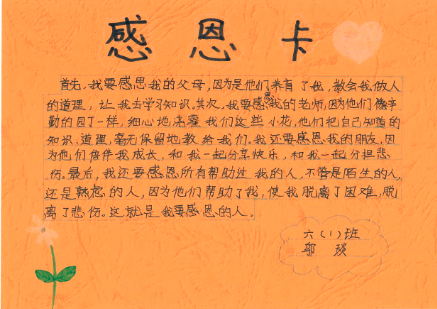 感恩卡
首先，我要感恩我的父母，因为是他们养育了我，教会我做人
的道理，让我去学习知识。其次，我要感恩我的老师，因为他们像辛
勤的园丁一样，细心地浇灌我们这些小花，他们把自己知道的
知识，道理，毫无保留地教给我们。我还要感恩我的朋友，因
为他们陪伴我成长，和我一起分享快乐，和我一起分担悲
伤。最后，我还要感恩所有帮助过我的人，不管是陌生的人，
还是熟悉的人，因为他们帮助了我，使我脱离了困难，脱
离了悲伤。这就是我要感恩的人。
六（1）班